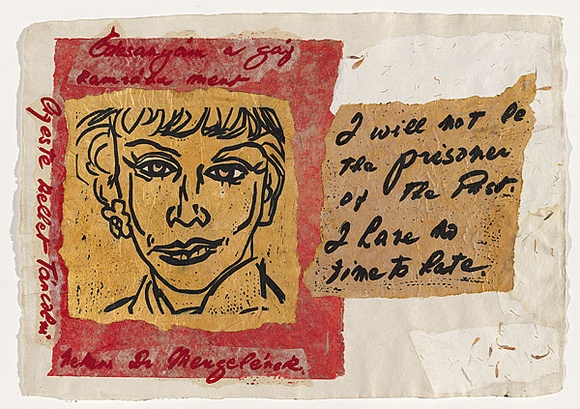 Édesanyám a gáz
kamrába ment
kellett Táncolni
Nekem Dr. Mengelének.
I will not be
the prisoner
of the Past.
I have no
time to hate.